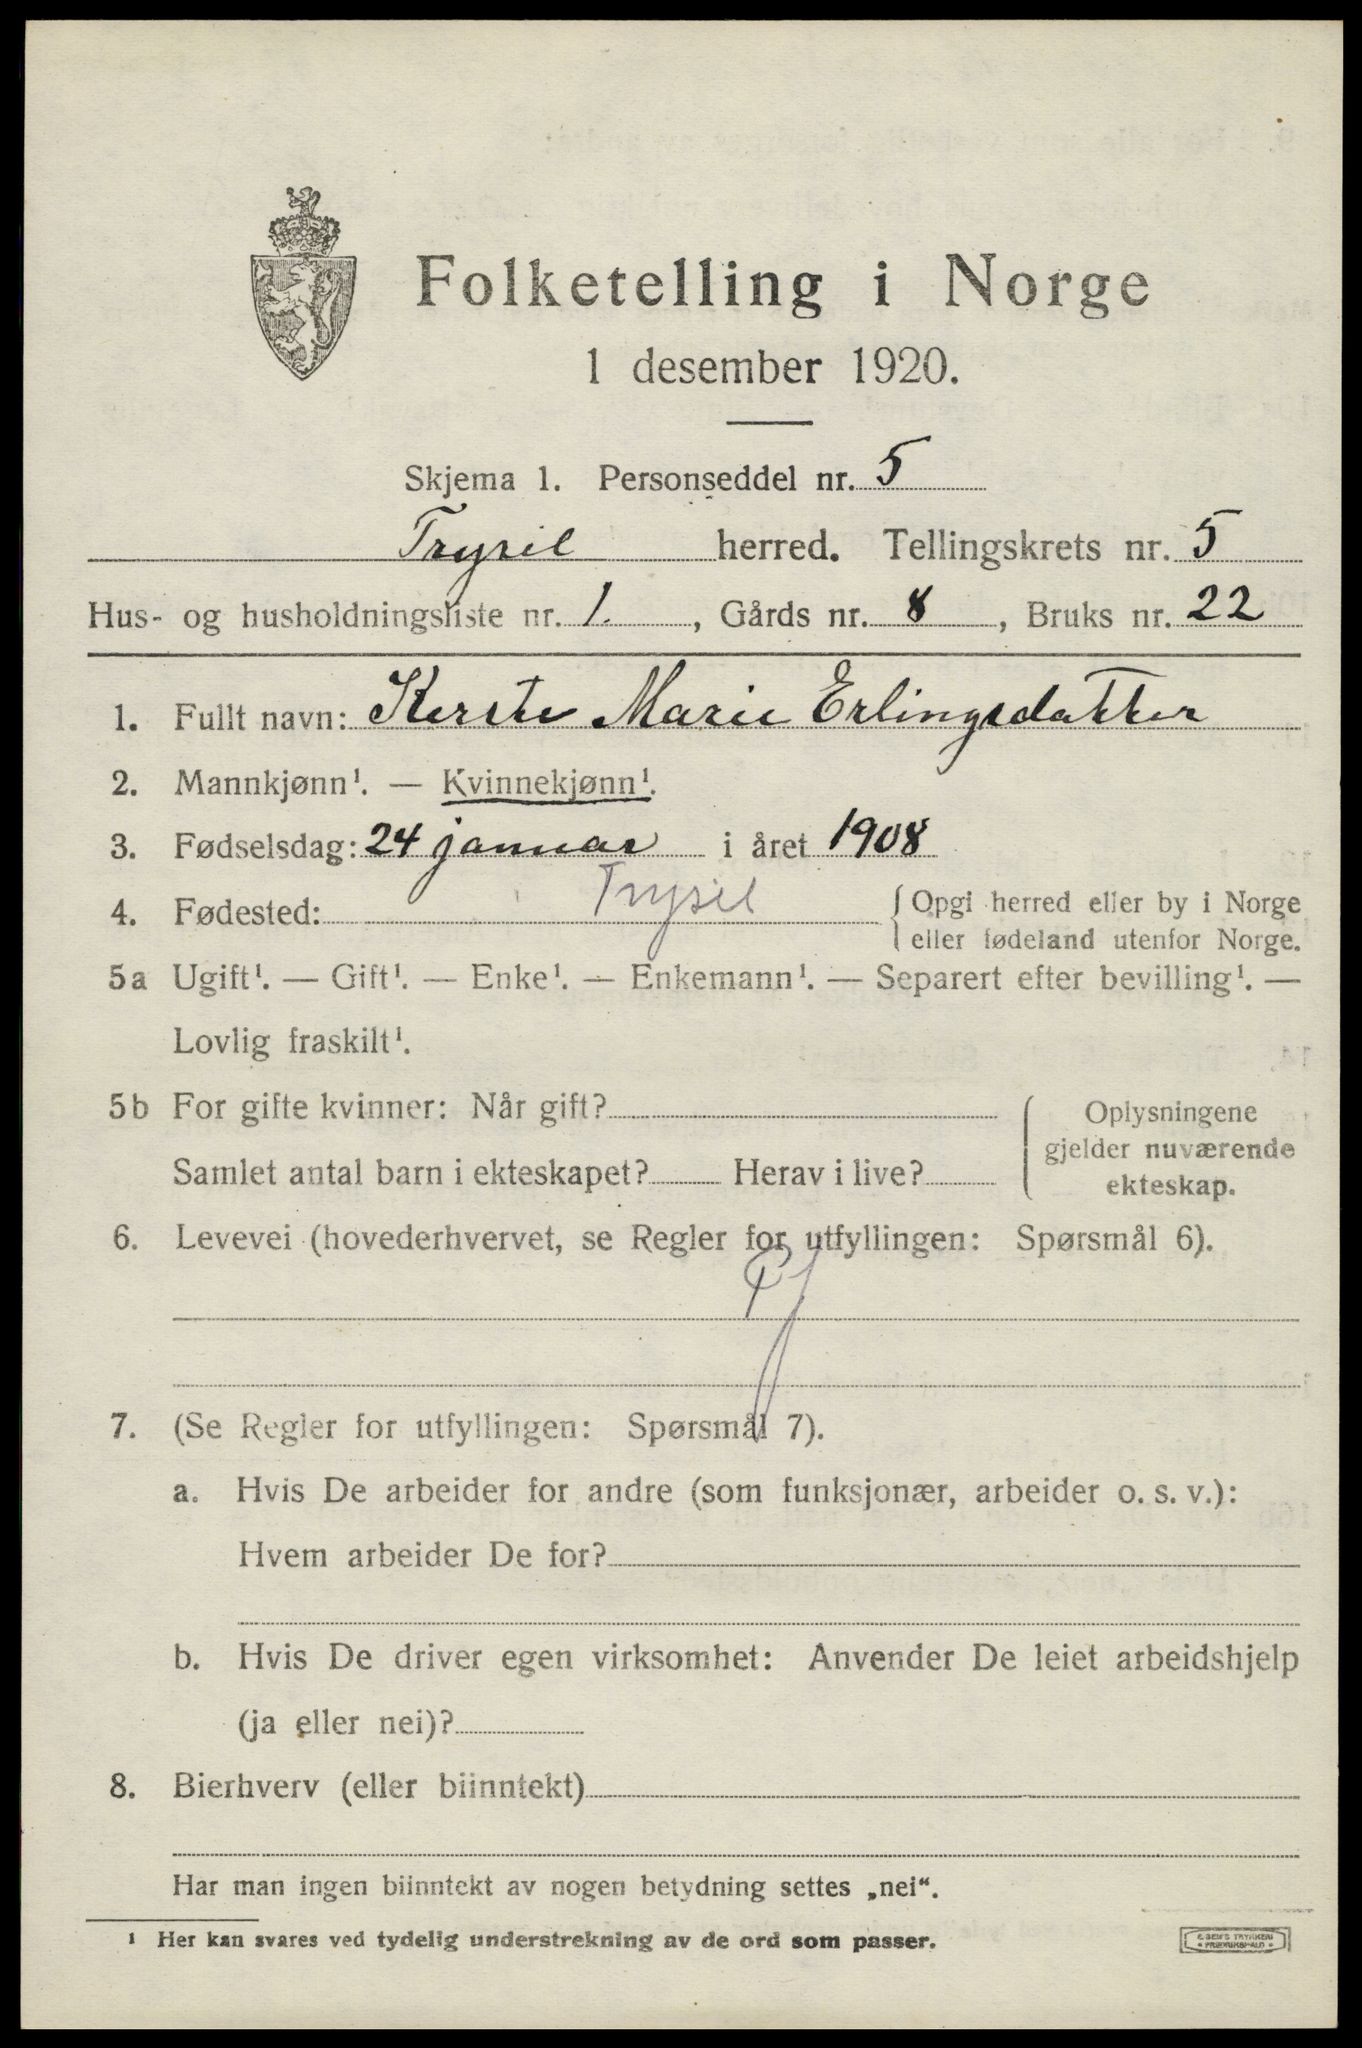 Folketelling i Norge
1 desember 1920.
Skjema 1. Personseddel nr. 5
Trysil herred. Tellingskrets nr. 5
Hus- og husholdningsliste nr. 1. , Gårds nr. 8 , Bruks nr. 22
1. Fullt navn: Kerste Marie Erlingsdatter
2. Mannkjønn¹. — Kvinnekjønn¹.
3. Fødselsdag: 24 januar i året 1908
4. Fødested: Trysil { Opgi herred eller by i Norge
eller fødeland utenfor Norge.
5a Ugift¹. — Gift¹. — Enke¹. — Enkemann¹. — Separert efter bevilling¹. —
Lovlig fraskilt¹.
5b For gifte kvinner: Når gift?
Samlet antal barn i ekteskapet? Herav i live?
Oplysningene
gjelder nuværende
ekteskap.
6. Levevei (hovederhvervet, se Regler for utfyllingen: Spørsmål 6).
7. (Se Regler for utfyllingen: Spørsmål 7).
a. Hvis De arbeider for andre (som funksjonær, arbeider o. s. v.):
Hvem arbeider De for?
b. Hvis De driver egen virksomhet: Anvender De leiet arbeidshjelp
(ja eller nei)?
8. Bierhverv (eller biinntekt)
Har man ingen biinntekt av nogen betydning settes „nei“.
¹ Her kan svares ved tydelig understrekning av de ord som passer.